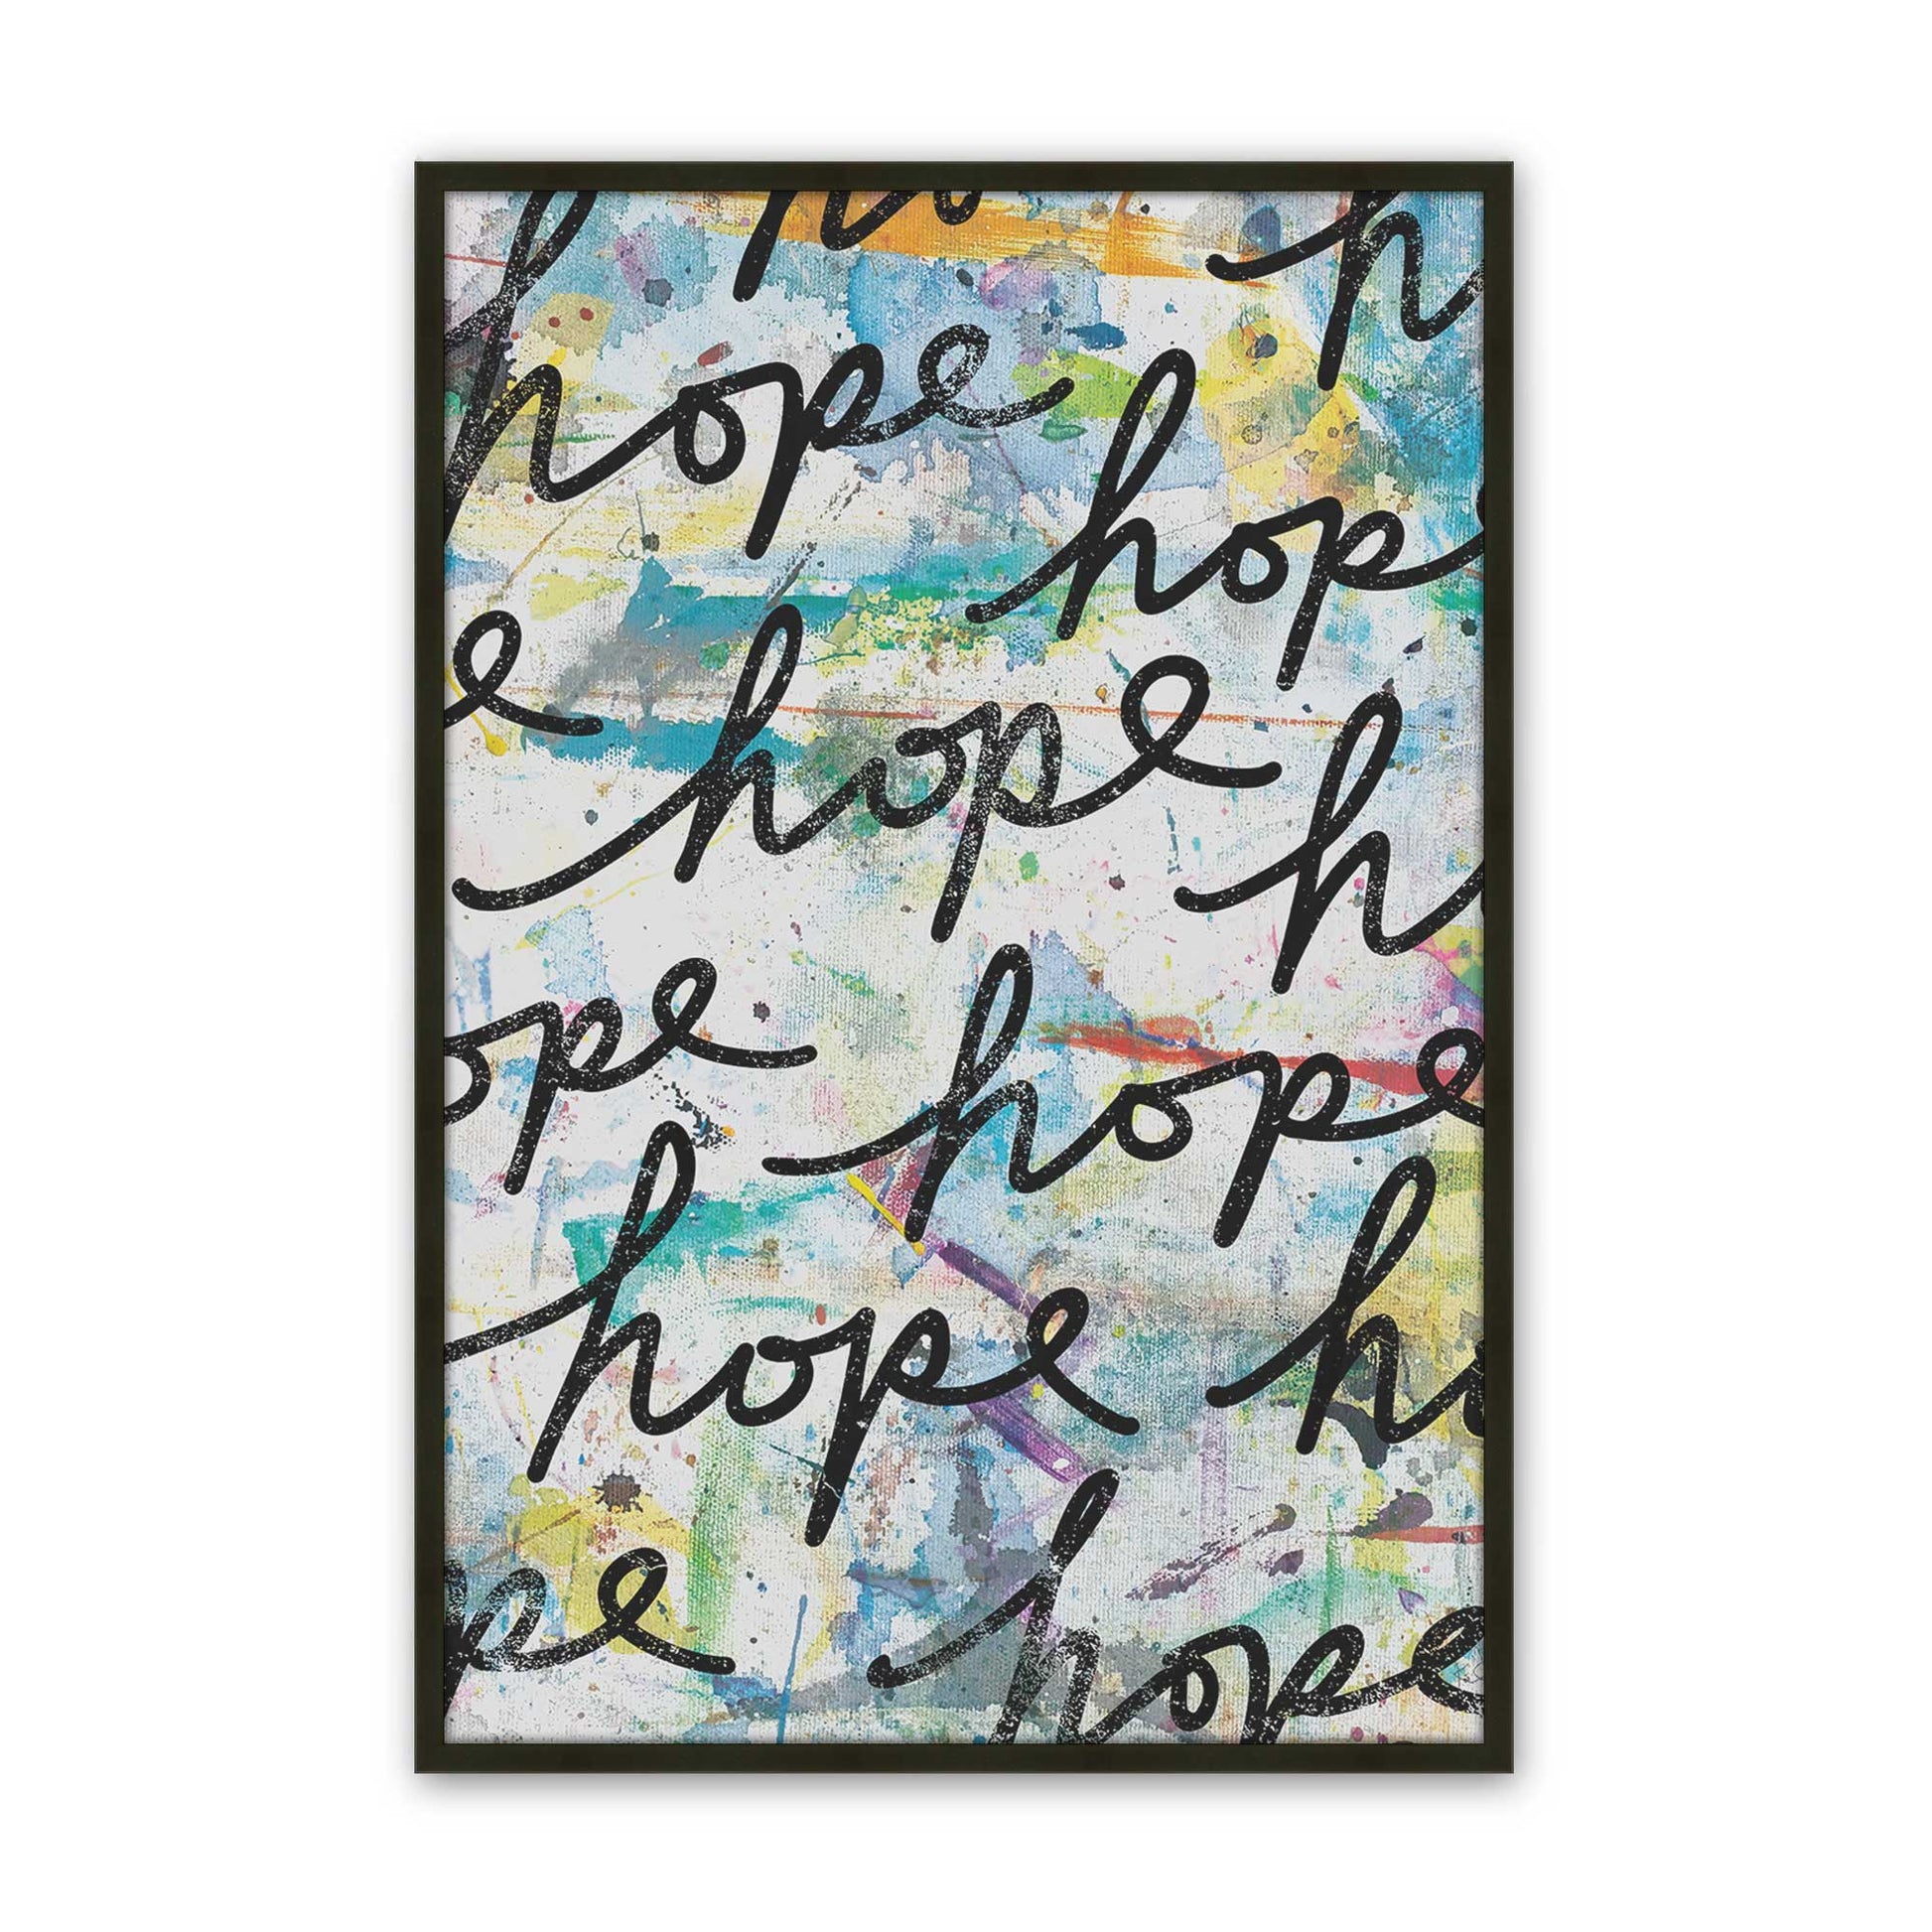 ho h
hope hop
e hope h
ope hope
hope ho
pe hope